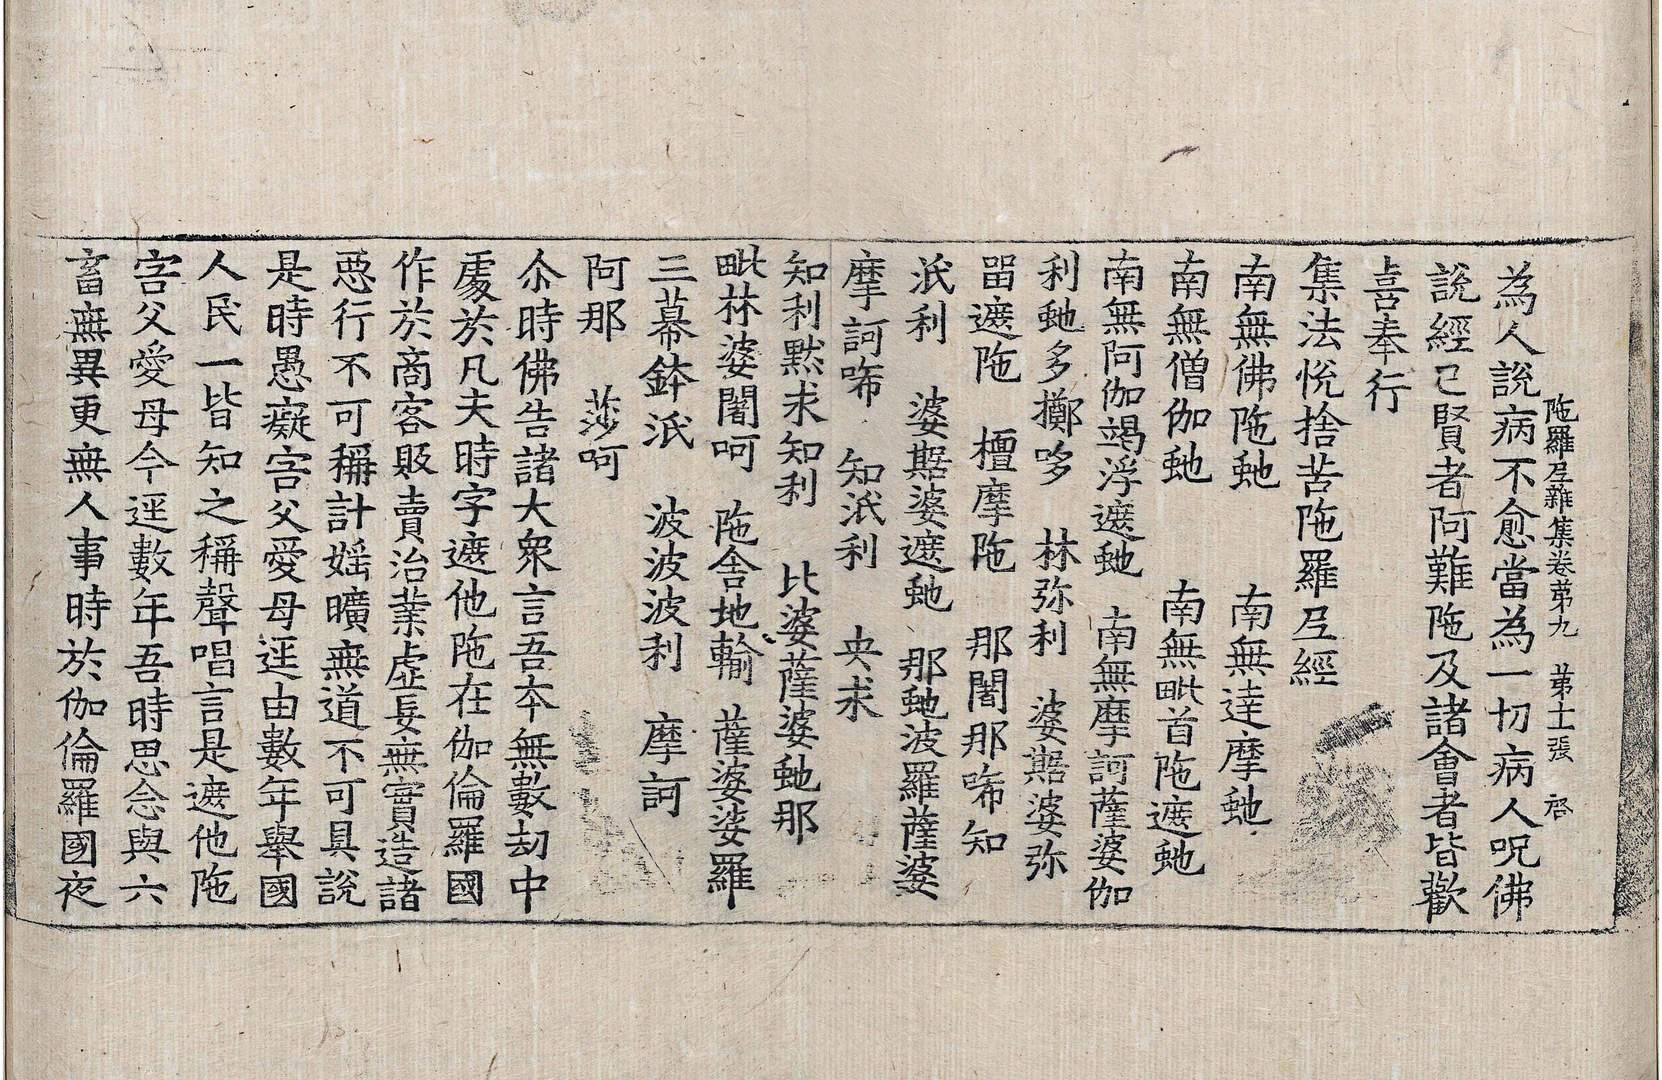 為人說病不愈當為一切病人呪佛
陁羅尼雜集卷第九　第十二張　啓
說經已賢者阿難陁及諸會者皆歡
喜奉行
集法悅捨苦陁羅尼經
南無佛陁虵　南無達摩虵
南無僧伽虵　南無毗首陁遮虵
南無阿伽竭浮遮虵　南無摩訶薩婆伽
利虵多擲哆　林弥利　婆㞐婆弥
畱遮陁　檀摩陁　那闍那唏知
泜利　婆㞐婆遮虵　那虵波羅薩婆
摩訶唏　知泜利　央求
知利默求知利　比婆薩婆虵那
毗林婆闍呵　陁舎地輸　薩婆婆羅
三幕鉢泜　波波波利　摩訶
阿那　莎呵
尒時佛告諸大衆言吾本無數劫中
處於凡夫時字遮他陁在伽倫羅國
作於商客販賣治業虛妄無實造諸
惡行不可稱計婬曠無道不可具說
是時愚癡害父愛母逕由數年舉國
人民一皆知之稱聲唱言是遮他陁
害父愛母今逕數年吾時思念與六
畜無異更無人事時於伽倫羅國夜